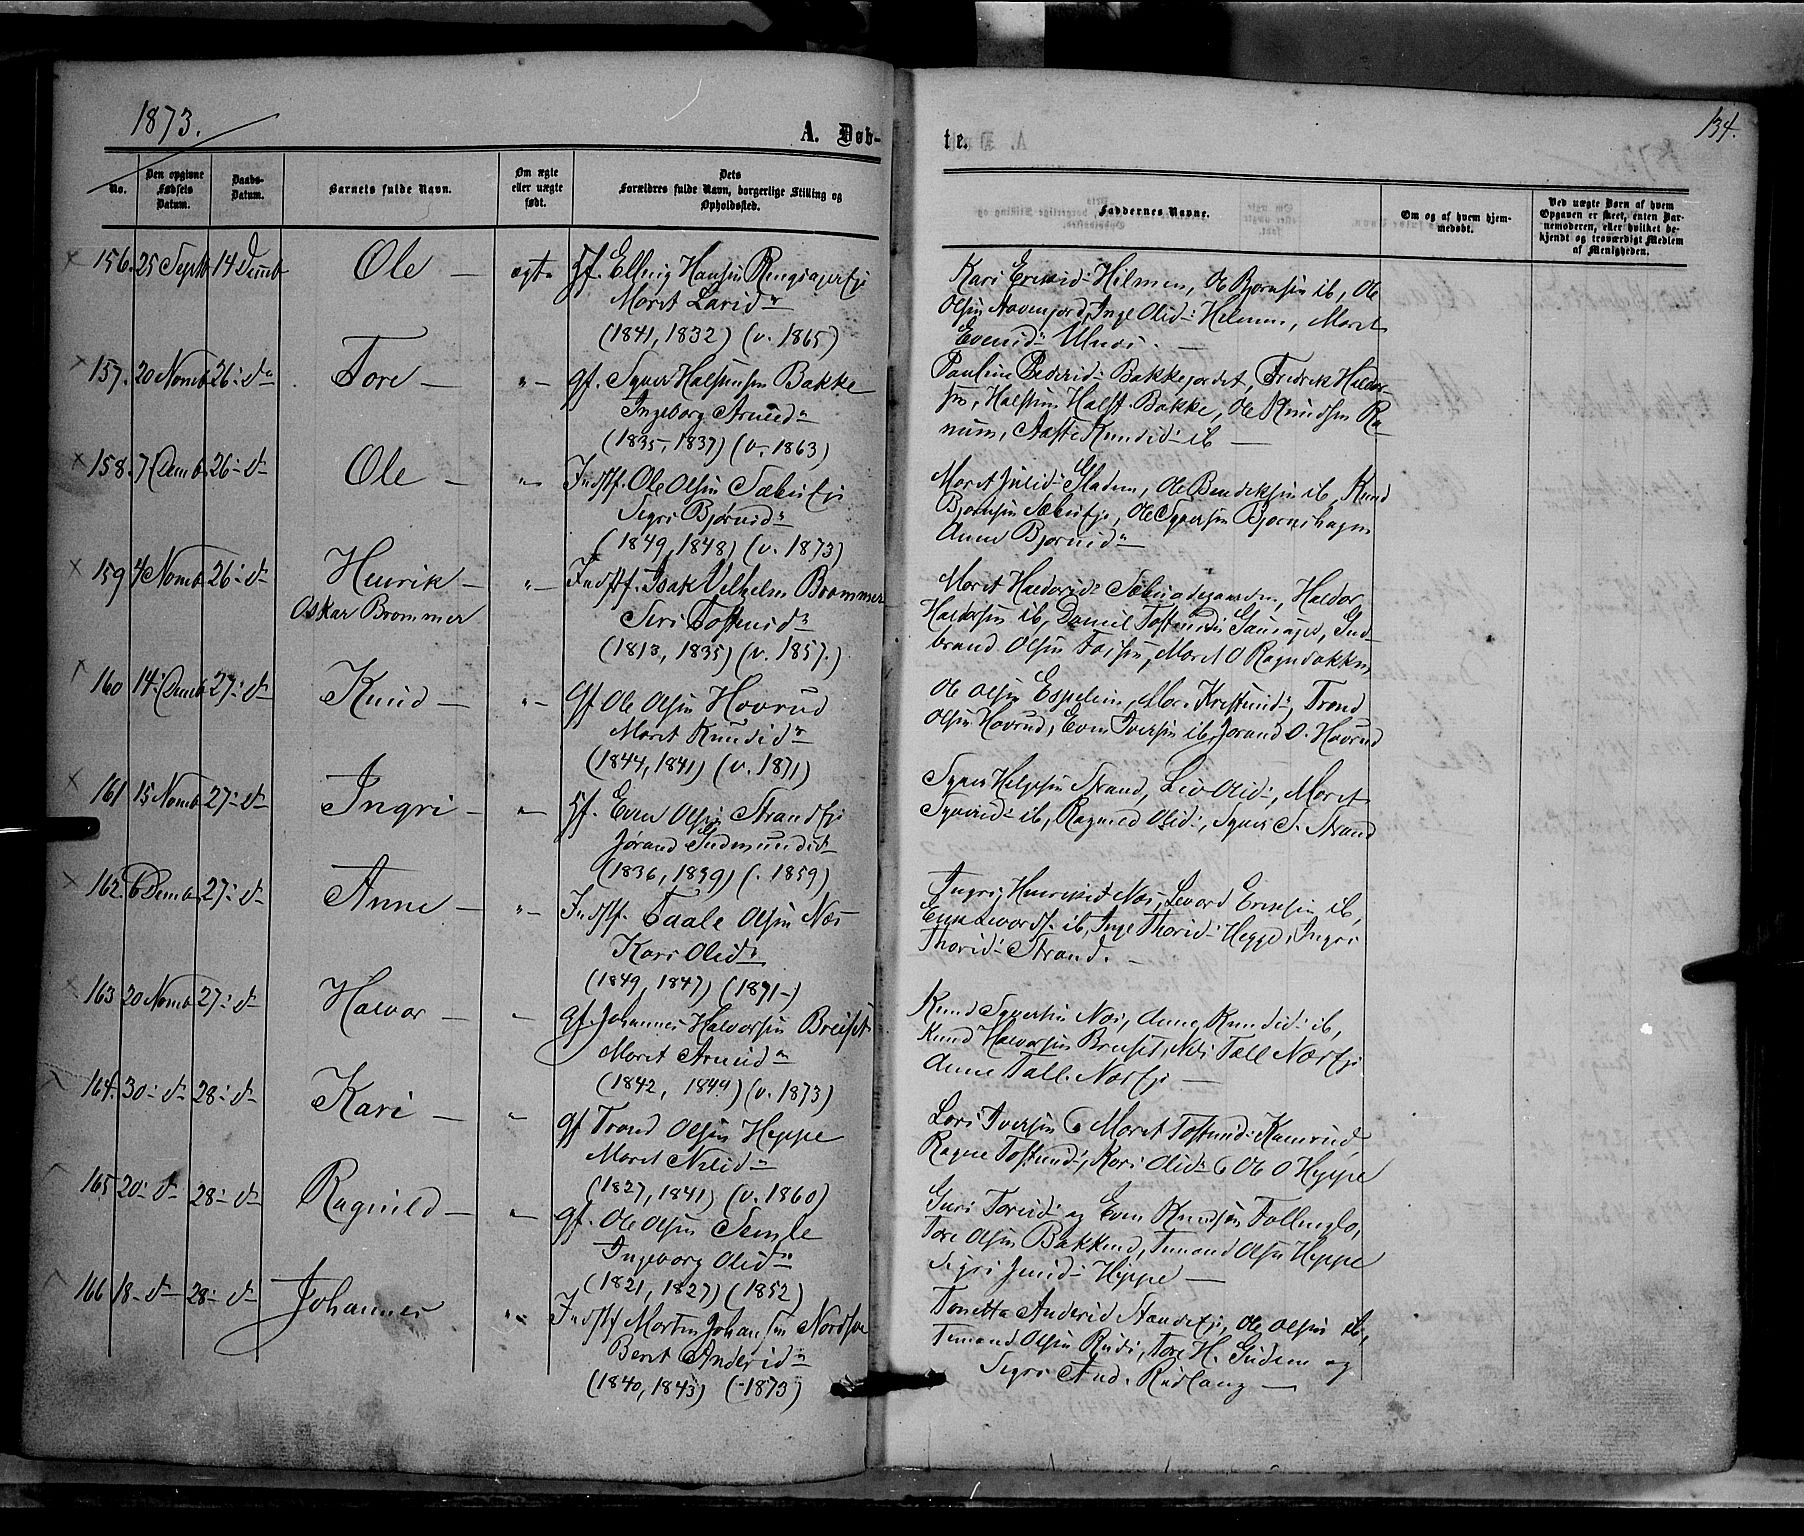 1873.
134.
A. Døb-
te.
No.
Den opgivne Fødsels Datum.
Daabs-Datum.
Barnets fulde Navn.
Om ægte eller uægte født.
Dets Forældres fulde Navn, borgerlige Stilling og Opholdssted.
Faddernes Navne.
Om og af hvem hjem-
medøbt.
Ved uægte Børn af hvem
Opgaven er skeet, enten Bar-
nemoderen, eller hvilket be-
kjendt og troværdigt Medlem
af Menigheden.
156. 25 Septb 14 Demb Ole — ægte Gf. Elling Hansen
Marit Larsd:
(1841, 1832) (v. 1865)
Kari Eriksd: Hilmen, Ole Bjørnsen ib, Ole
Olsen Inge Olsd: Hilmen, Marit
Evensd: Ulnes. —
157. 20 Nomb 26: d: Tore — "— Gf. Syver Halstensen Bakke
Ingeborg Arnesd:
(1835, 1837) (v. 1863)
Pauline Pedersd: Bakkejordet, Fredrik Haldor
sen, Halsten Halst. Bakke, Ole Knudsen Ra-
num, Knudsd: ib —
158. 7 Demb 26: d: Ole — "— Indstf. Ole Olsen
Sigri Bjørnsd:
(1849, 1848) (v. 1873)
Marit Juulsd: Gladem, Ole Bendiksen ib, Knud
Bjørnsen Ole Syversen Bjørnshagen
Anne Bjørnsd:
159 4 Nomb 26: d: Henrik — "— Indstf. Isak Vilhelm Brommer
Oskar Brommer
Siri Tostensd:
(1813, 1835) (v. 1857.)
Marit Haldorsd: Haldor
Haldorsen ib, Daniel Gud-
brand Olsen Marit O
160 14: Demb 27: d: Knud — "— Gf Ole Olsen Hovrud
Marit Knudsd:
(1844, 1841) (v. 1871)
Ole Olsen Espelien, Trond
Olsen Hovrud, Even Iversen ib, Jorand O. Hovrud
161 15 Nomb 27: d: Ingri — "— Gf. Even Olsen Strandeje
Jørand Gudmundsd:
(1836, 1839) (. 1859)
Syver Helgesen Strand, Liv Olsd:, Marit
Syversd: ib, Ragnild Olsd:, Syver S. Strand
162. 6 Demb 27: d: Anne — "— Indstf. Taale Olsen Næs
Kari Olsd:
(1849, 1847) (1871—)
Ingri Henriksd Næs, Levord Eriksen ib,
Erik Levords. ib, Inge Thorsd: Hegge, Ingri
Thorsd: Strand. —
163 20 Nomb 27: d: Halvor — "— Gf. Johannes Halvorsen Breiset
Marit Arnesd:
(1842, 1844) (v. 1873)
Knud Syversen Næs, Anne Knudsd: ib,
Knud Halvorsen Breiset,
Anne —
164. 30: d: 28: d: Kari — "— Gf Trond Olsen Heppe
Marit Nilsd:
(1827, 1841) (v. 1860)
Lars Iversen & Marit Tostensd: Kamrud
Ragne Tostensd:, Kari Olsd: & Ole O Heppe
165 20: d: 28: d: Ragnild — "— Gf. Ole Olsen Semle
Ingeborg Olsd:
(1821, 1827) (1852)
Guri Toresd: og Even Knudsen Follinglo,
Tore Olsen Bakkend, Temand Olsen Heppe
Sigri Heppe —
166 18: d: 28: d: Johannes "— Indstf Morten Johansen
Berit Andersd:
(1840, 1843) (—1873)
Tonetta Andersd Ole Olsen ib,
Temand Olsen Rudi, Tore H. og
Sigri And. —